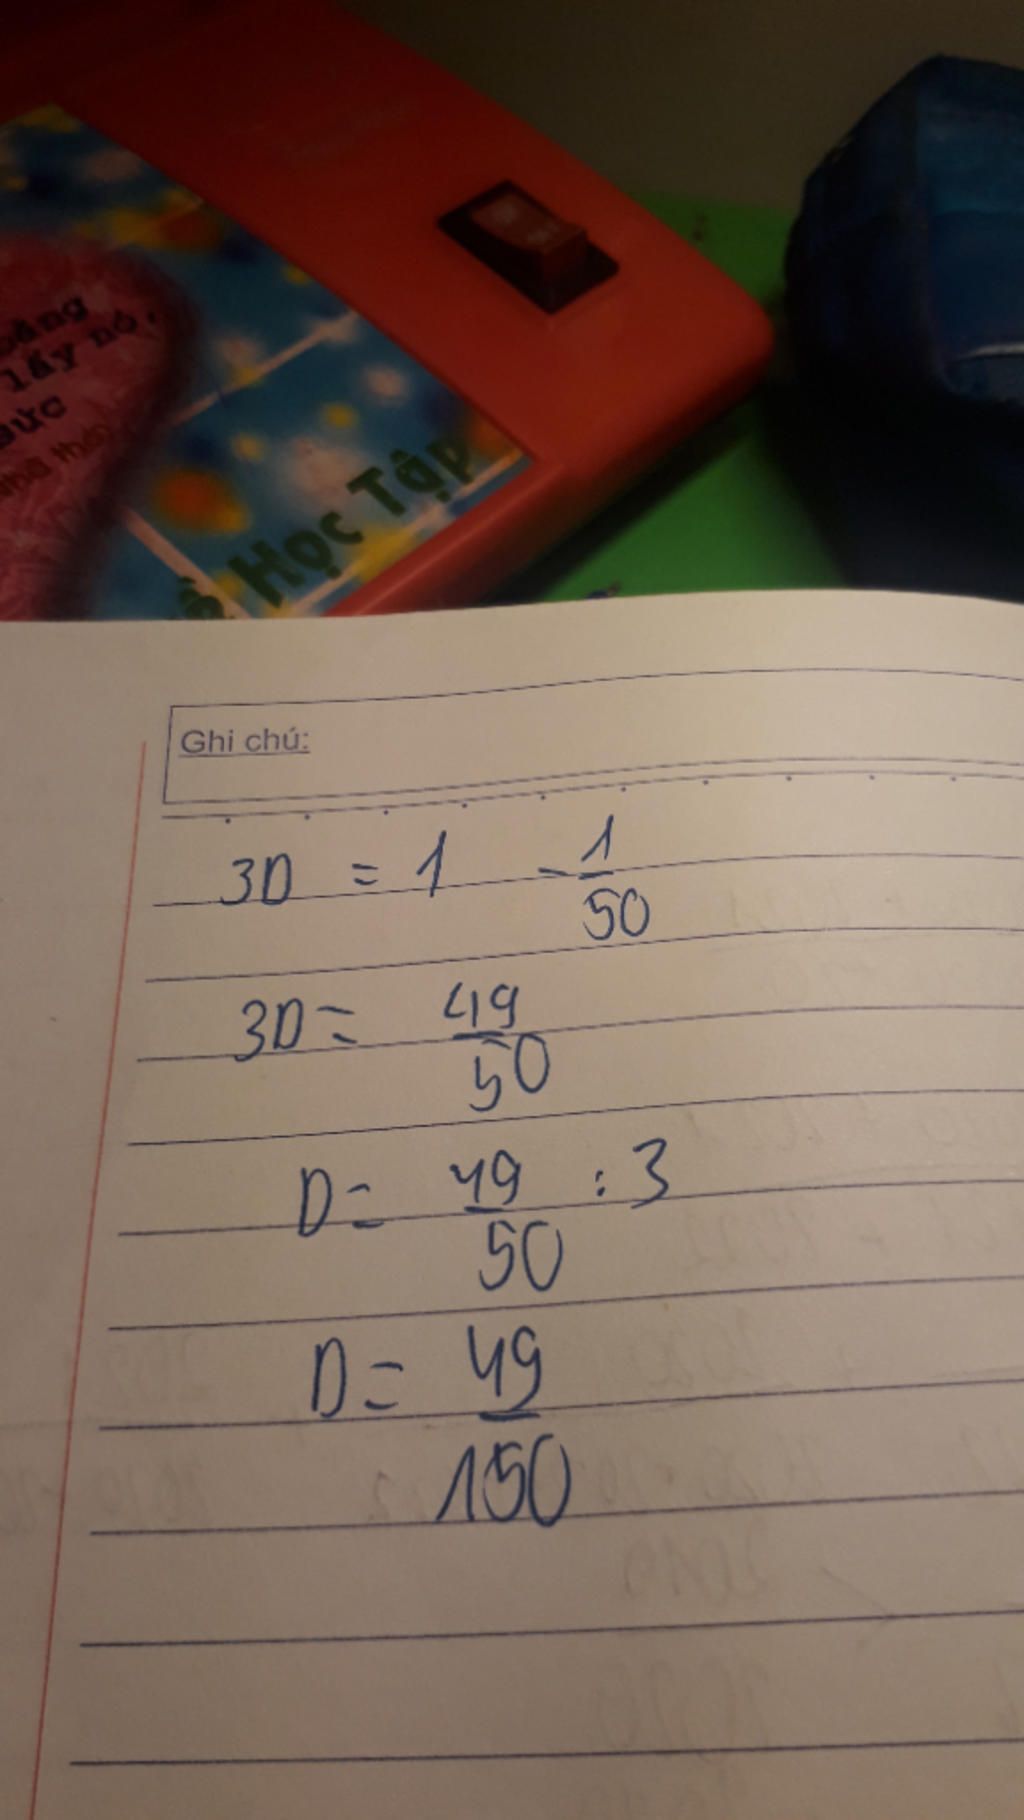 oảng
lấy nó,
sức
Học Tập
Ghi chú:
3D = 1 - 1/50
3D = 49/50
D = 49/50 : 3
D = 49/150